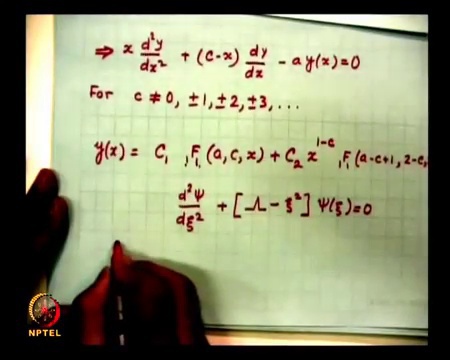 ⇒ x d²y/dx² + (c-x) dy/dx - a y(x) = 0
For c ≠ 0, ±1, ±2, ±3, ...
y(x) = C₁ ₁F₁(a, c, x) + C₂ x^{1-c} ₁F₁(a-c+1, 2-c,
d²Ψ/dξ² + [Λ - ξ²] Ψ(ξ) = 0
NPTEL